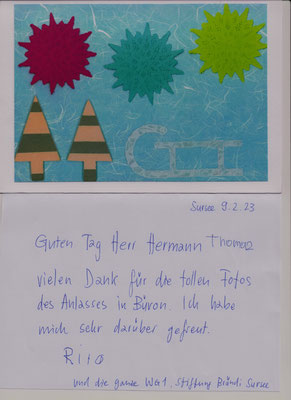 Sursee 9.2.23
Guten Tag Herr Hermann Thomas
vielen Dank für die tollen Fotos
des Anlasses in Büron. Ich habe
mich sehr darüber gefreut.
Rita
und die ganze WG1, Stiftung Brändi Sursee